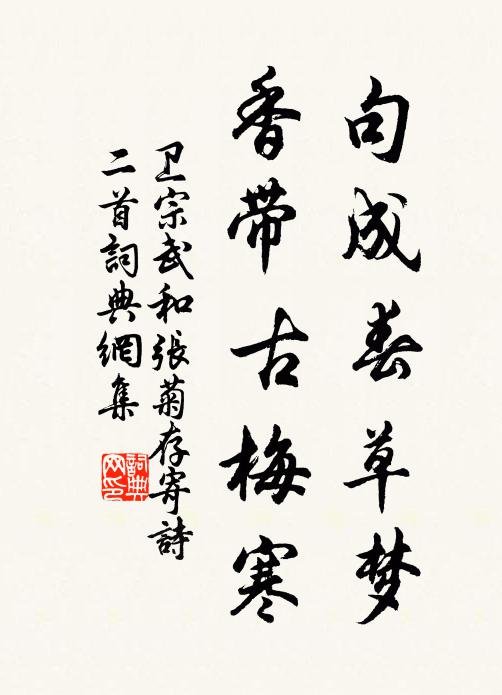 句成春草梦
香带古梅寒
卫宗武和張菊存寄詩
二首詞典網集
詞典
网印